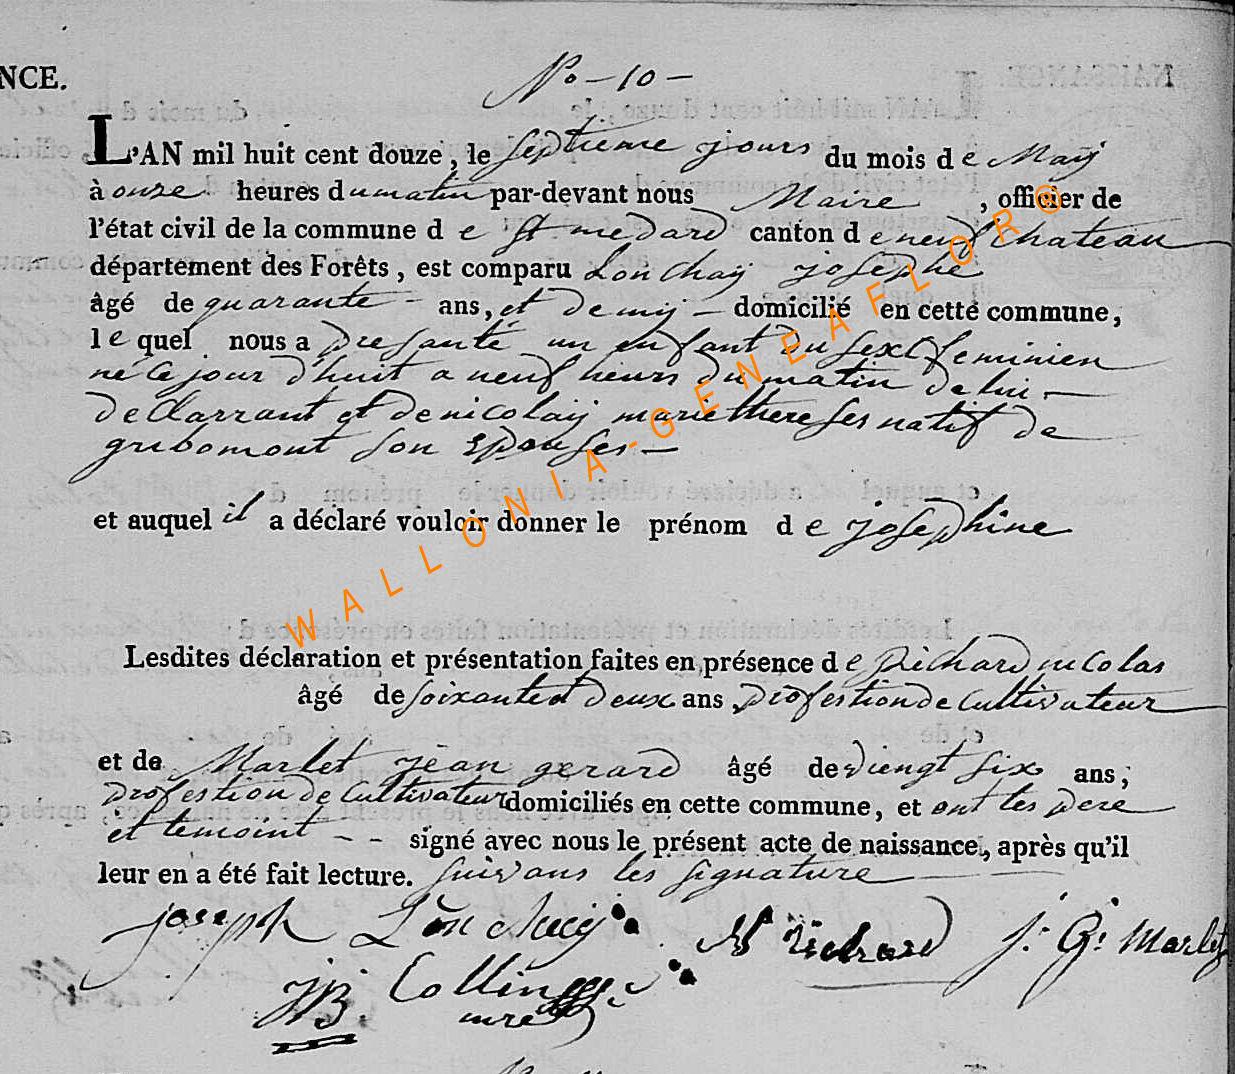 NCE.
No - 10 -
L'AN mil huit cent douze, le septieme jours du mois de Maÿ
à onze heures du matin par-devant nous Maire, officier de
l'état civil de la commune de St medard canton de neufchateau
département des Forêts, est comparu Lonchaÿ josephe
âgé de quarante - ans, et demÿ - domicilié en cette commune,
lequel nous a presanté un enfant du sexe feminien
né ce jour d'huit a neuf heurs du matin de lui -
declarrant et de nicolaÿ marie thereses natif de
gribomont son epouses -
et auquel il a déclaré vouloir donner le prénom de josephine
Lesdites déclaration et présentation faites en présence de Richard nicolas
âgé de soixante et deux ans profestion de cultivateur
et de Marlet jean gerard âgé de viengt six ans,
profestion de cultivateur domiciliés en cette commune, et ont les pere
et temoint - - signé avec nous le présent acte de naissance, après qu'il
leur en a été fait lecture. suivans les signature
joseph Lonchaÿ N Richard J. G. Marlet
JB Collin
mre
WALLONIA-GENEAFLOR®